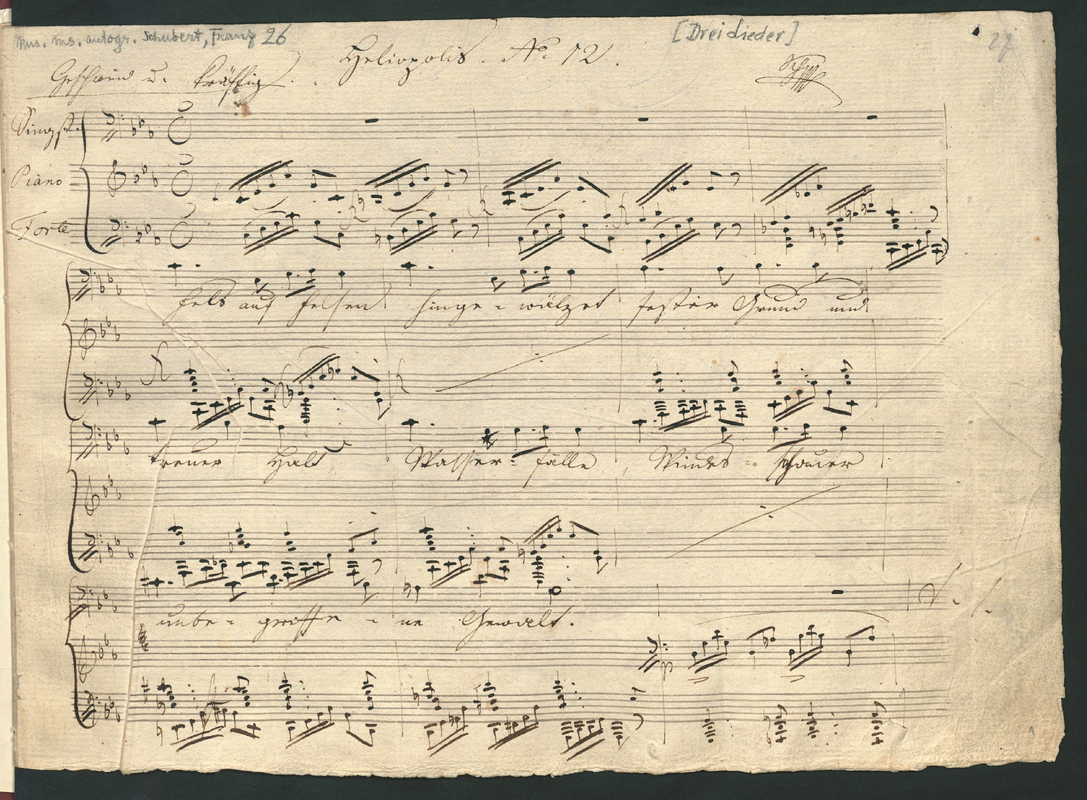 Mus. ms. autogr. Schubert, Franz 26
[Drei Lieder]
27
Heliopolis. No 12.
Geschwind u. kräftig.
Singst.
Piano
Forte
Fels auf Felsen hinge-wälzet fester Grund und
treuer Halt, Wasser-fälle, Windes-schauer
unbe-griffe-ne Gewalt.
V. S.